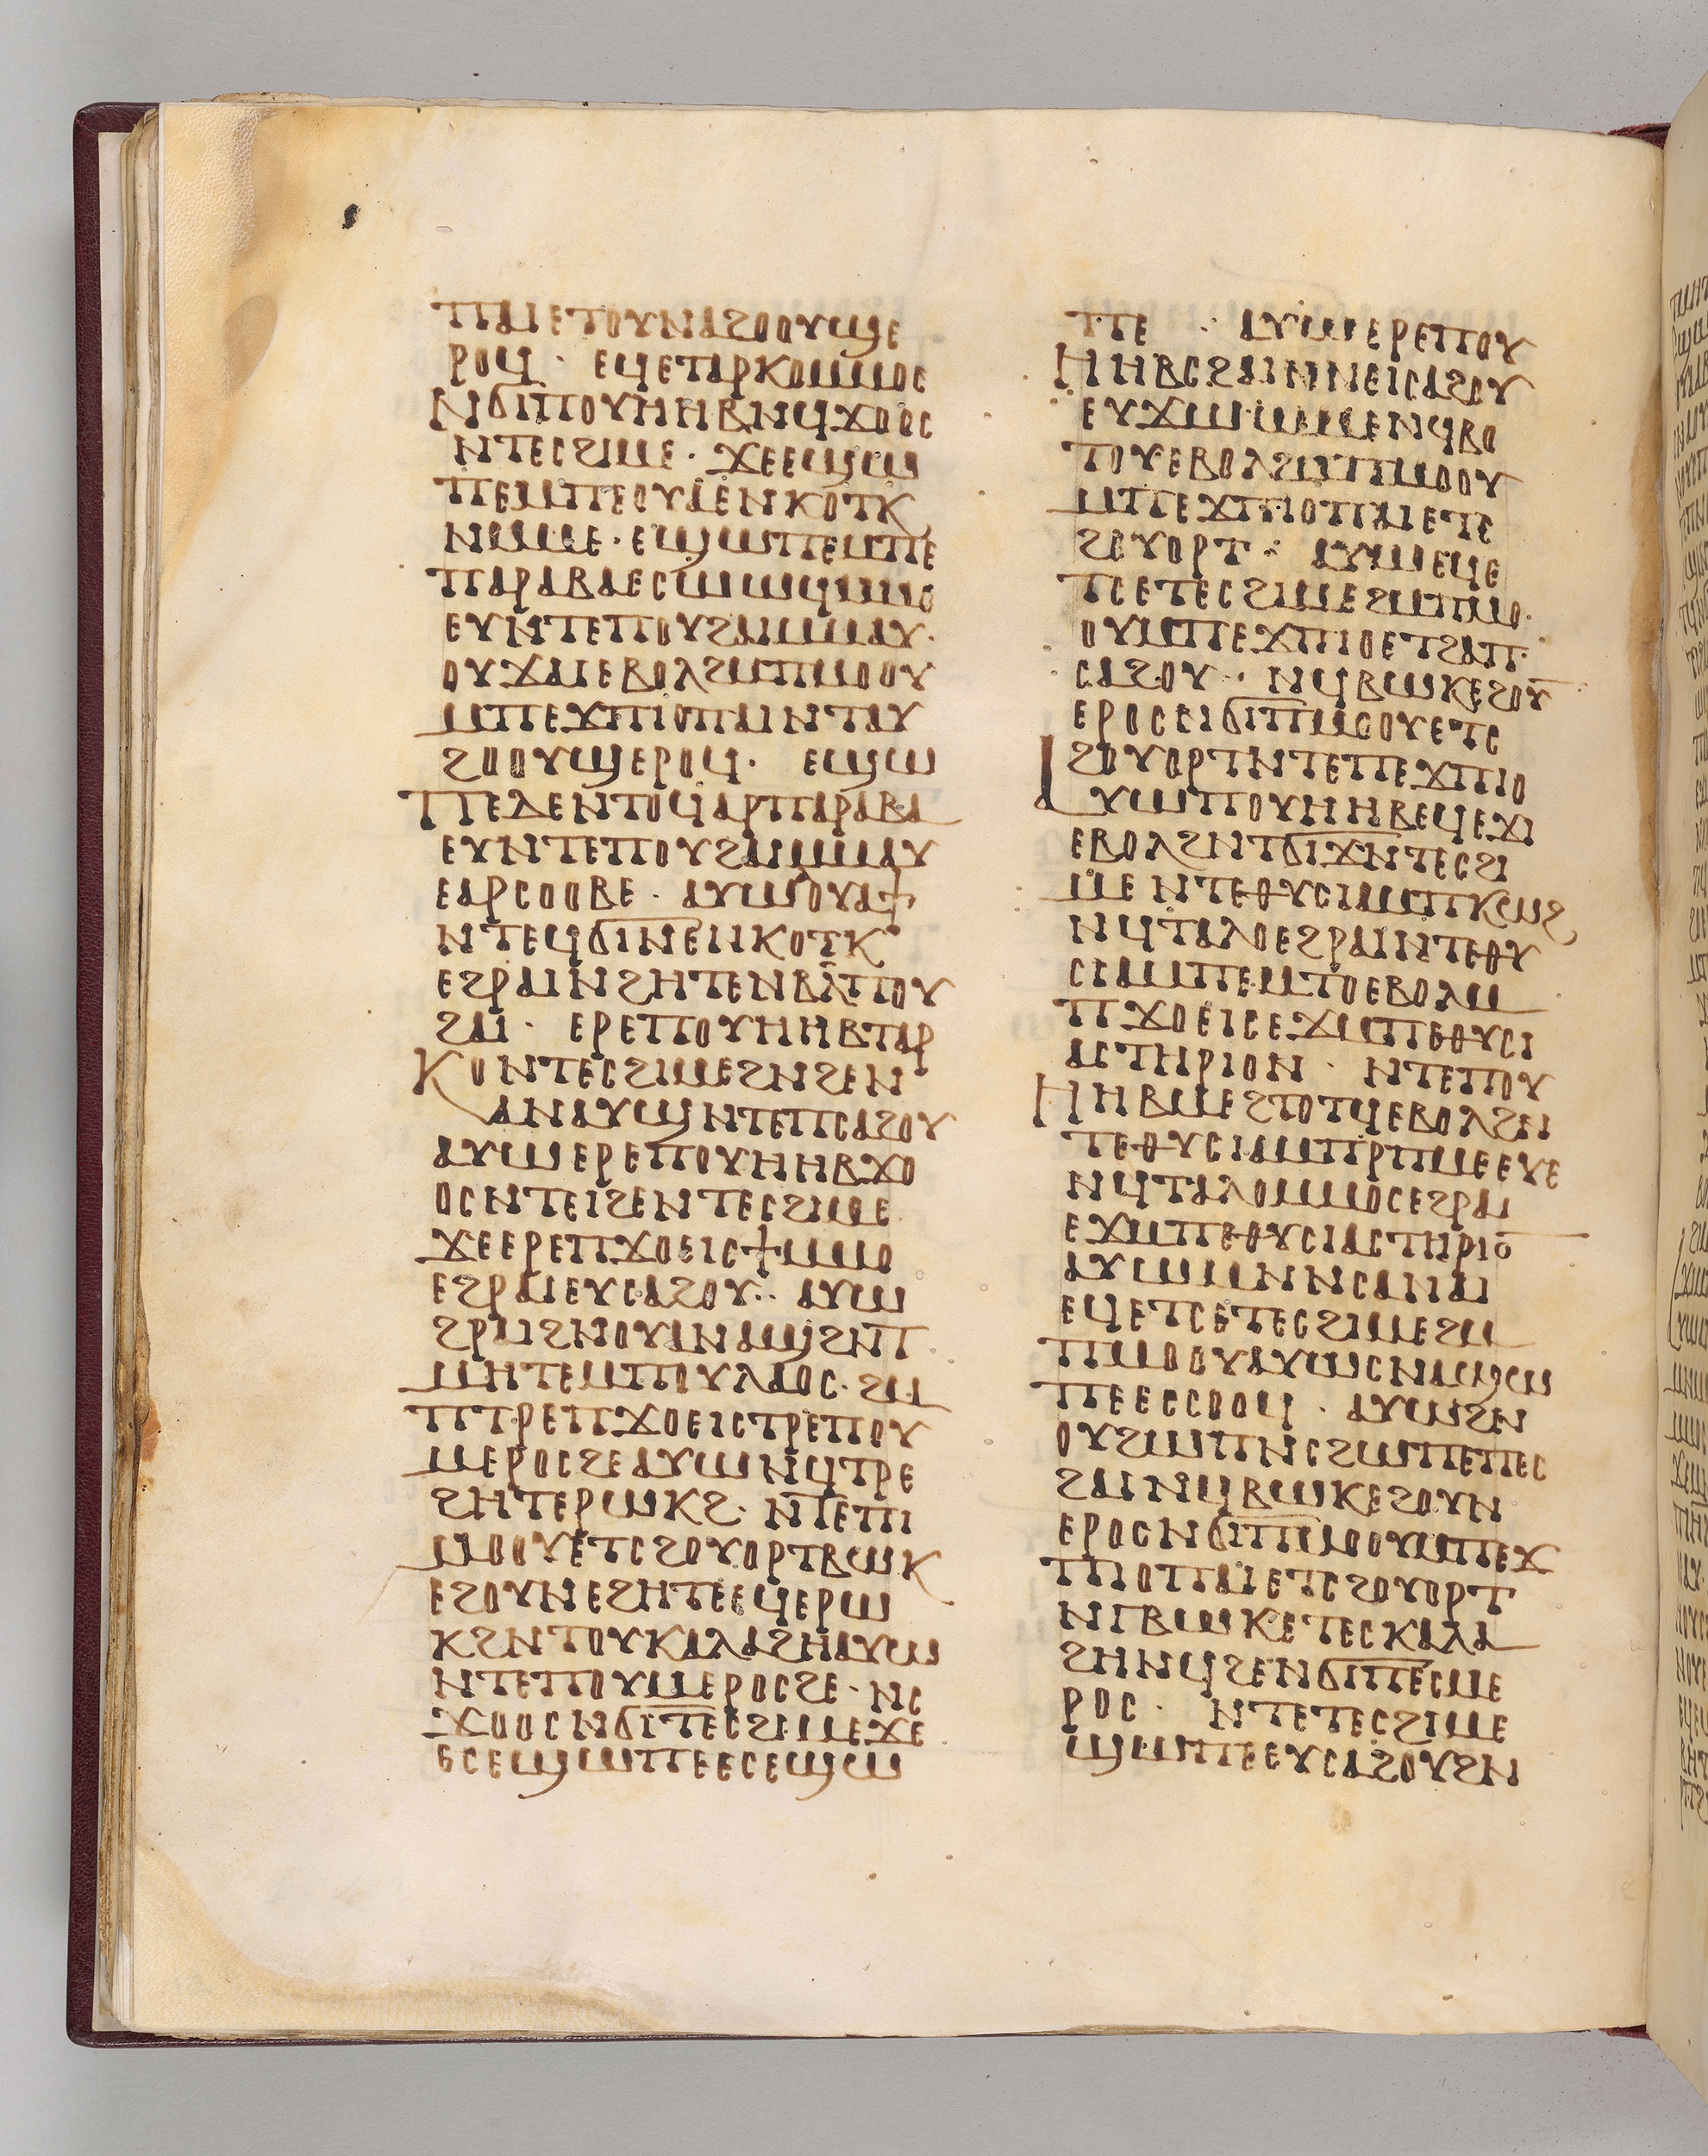 ⲡⲁⲓⲉⲧⲟⲩⲛⲁϩⲟⲟⲩϣⲉ
ⲣⲟϥ· ⲉϥⲉⲧⲁⲣⲕⲟⲙⲙⲟⲥ
ⲛϭⲓⲡⲟⲩⲏⲏⲃⲛϥϫⲟⲟⲥ
ⲛⲧⲉⲥϩⲓⲙⲉ· ϫⲉⲉϣⲱ
ⲡⲉⲙⲡⲉⲟⲩⲁⲉⲛⲕⲟⲧⲕ
ⲛⲙⲙⲉ· ⲉϣⲱⲡⲉⲙⲡⲉ
ⲡⲁⲣⲁⲃⲁⲉⲥⲱⲱϥⲙⲙⲟ
ⲉⲩⲛⲧⲉⲡⲟⲩϩⲁⲓⲙⲙⲁⲩ·
ⲟⲩϫⲁⲓⲉⲃⲟⲗϩⲙⲡⲙⲟⲟⲩ
ⲙⲡⲉϫⲡⲓⲟⲡⲁⲓⲛⲧⲁⲩ
ϩⲟⲟⲩϣⲉⲣⲟϥ· ⲉϣⲱ
ⲡⲉⲇⲉⲛⲧⲟϥⲁⲣⲡⲁⲣⲁⲃⲁ
ⲉⲩⲛⲧⲉⲡⲟⲩϩⲁⲓⲙⲙⲁⲩ
ⲉⲁⲣⲥⲟⲟⲃⲉ· ⲁⲩⲱⲟⲩⲁϯ
ⲛⲧⲉϥϭⲓⲛⲉⲛⲕⲟⲧⲕ
ⲉϩⲣⲁⲓⲛϩⲏⲧⲉⲛⲃⲗⲡⲟⲩ
ϩⲁⲓ· ⲉⲣⲉⲡⲟⲩⲏⲏⲃⲧⲁⲣ
ⲕⲟⲛⲧⲉⲥϩⲓⲙⲉϩⲛϩⲉⲛ
ⲁⲛⲁⲩϣⲛⲧⲉⲡⲥⲁϩⲟⲩ
ⲁⲩⲱⲉⲣⲉⲡⲟⲩⲏⲏⲃϫⲟ
ⲟⲥⲛⲧⲉⲓϩⲉⲛⲧⲉⲥϩⲓⲙⲉ
ϫⲉⲉⲣⲉⲡϫⲟⲉⲓⲥϯⲙⲙⲟ
ⲉϩⲣⲁⲓⲉⲩⲥⲁϩⲟⲩ·· ⲁⲩⲱ
ϩⲣⲁⲓϩⲛⲟⲩⲁⲛⲁϣϩⲛⲧ
ⲙⲏⲧⲉⲙⲡⲟⲩⲗⲁⲟⲥ· ϩⲙ
ⲡⲧⲣⲉⲡϫⲟⲉⲓⲥⲧⲣⲉⲡⲟⲩ
ⲙⲉⲣⲟⲥϩⲉⲁⲩⲱⲛϥⲧⲣⲉ
ϩⲏⲧⲉⲣⲱⲕϩ· ⲛⲧⲉⲡⲓ
ⲙⲟⲟⲩⲉⲧⲥϩⲟⲩⲟⲣⲧⲃⲱⲕ
ⲉϩⲟⲩⲛⲉϩⲏⲧⲉⲉϥⲉⲣⲱ
ⲕϩⲛⲧⲟⲩⲕⲁⲗⲁϩⲏⲁⲩⲱ
ⲛⲧⲉⲡⲟⲩⲙⲉⲣⲟⲥϩⲉ· ⲛⲥ
ϫⲟⲟⲥⲛϭⲓⲧⲉⲥϩⲓⲙⲉϫⲉ
ⲉⲥⲉϣⲱⲡⲉⲉⲥⲉϣⲱ
ⲡⲉ ·· ⲁⲩⲱⲉⲣⲉⲡⲟⲩ
ⲏⲏⲃⲥϩⲁⲓⲛⲛⲉⲓⲥⲁϩⲟⲩ
ⲉⲩϫⲱⲱⲙⲉⲛϥⲃⲟ
ⲧⲟⲩⲉⲃⲟⲗϩⲙⲡⲙⲟⲟⲩ
ⲙⲡⲉϫⲡⲓⲟⲡⲁⲓⲉⲧⲥ
ϩⲟⲩⲟⲣⲧ·: ⲁⲩⲱⲉϥⲉ
ⲧⲥⲉⲧⲉⲥϩⲓⲙⲉϩⲙⲡⲙⲟ·
ⲟⲩⲙⲡⲉϫⲡⲓⲟⲉⲧϩⲁⲡ·
ⲥⲁϩⲟⲩ·· ⲛϥⲃⲱⲕⲉϩⲟⲩ̄
ⲉⲣⲟⲥⲛϭⲓⲡⲙⲟⲟⲩⲉⲧⲥ
ϩⲟⲩⲟⲣⲧⲛⲧⲉⲡⲉϫⲡⲓⲟ
ⲁⲩⲱⲡⲟⲩⲏⲏⲃⲉϥⲉϫⲓ
ⲉⲃⲟⲗϩⲛⲧϭⲓϫⲛⲧⲉⲥϩⲓ
ⲙⲉⲛⲧⲉⲑⲩⲥⲓⲁⲙⲡⲕⲱϩ
ⲛϥⲧⲁⲗⲟⲉϩⲣⲁⲓⲛⲧⲉⲑⲩ
ⲥⲓⲁⲙⲡⲉⲙⲧⲟⲉⲃⲟⲗⲙ
ⲡϫⲟⲉⲓⲥⲉϫⲙⲡⲉⲑⲩⲥⲓ
ⲁⲥⲧⲏⲣⲓⲟⲛ· ⲛⲧⲉⲡⲟⲩ
ⲏⲏⲃⲙⲉϩⲧⲟⲧϥⲉⲃⲟⲗϩⲛ
ⲧⲉⲑⲩⲥⲓⲁⲙⲡⲣⲡⲙⲉⲉⲩⲉ
ⲛϥⲧⲁⲗⲟⲙⲙⲟⲥⲉϩⲣⲁⲓ
ⲉϫⲙⲡⲉⲑⲩⲥⲓⲁⲥⲧⲏⲣⲓⲟ̄
ⲁⲩⲱⲙⲛⲛⲥⲁⲛⲁⲓ
ⲉϥⲉⲧⲥⲉⲧⲉⲥϩⲓⲙⲉϩⲙ
ⲡⲙⲟⲟⲩⲁⲩⲱⲥⲛⲁϣⲱ
ⲡⲉⲉⲥⲥⲟⲟϥ· ⲁⲩⲱϩⲛ
ⲟⲩϩⲱⲡⲛⲥϩⲱⲡⲉⲡⲉⲥ
ϩⲁⲓⲛϥⲃⲱⲕⲉϩⲟⲩⲛ
ⲉⲣⲟⲥⲛϭⲓⲡⲙⲟⲟⲩⲙⲡⲉϫ
ⲡⲓⲟⲡⲁⲓⲉⲧⲥϩⲟⲩⲟⲣⲧ
ⲛϥⲃⲱⲕⲉⲧⲉⲥⲕⲁⲗⲁ
ϩⲏⲛϥϩⲉⲛϭⲓⲡⲉⲥⲙⲉ
ⲣⲟⲥ· ⲛⲧⲉⲧⲉⲥϩⲓⲙⲉ
ϣⲱⲡⲉⲉⲩⲥⲁϩⲟⲩϩⲛ